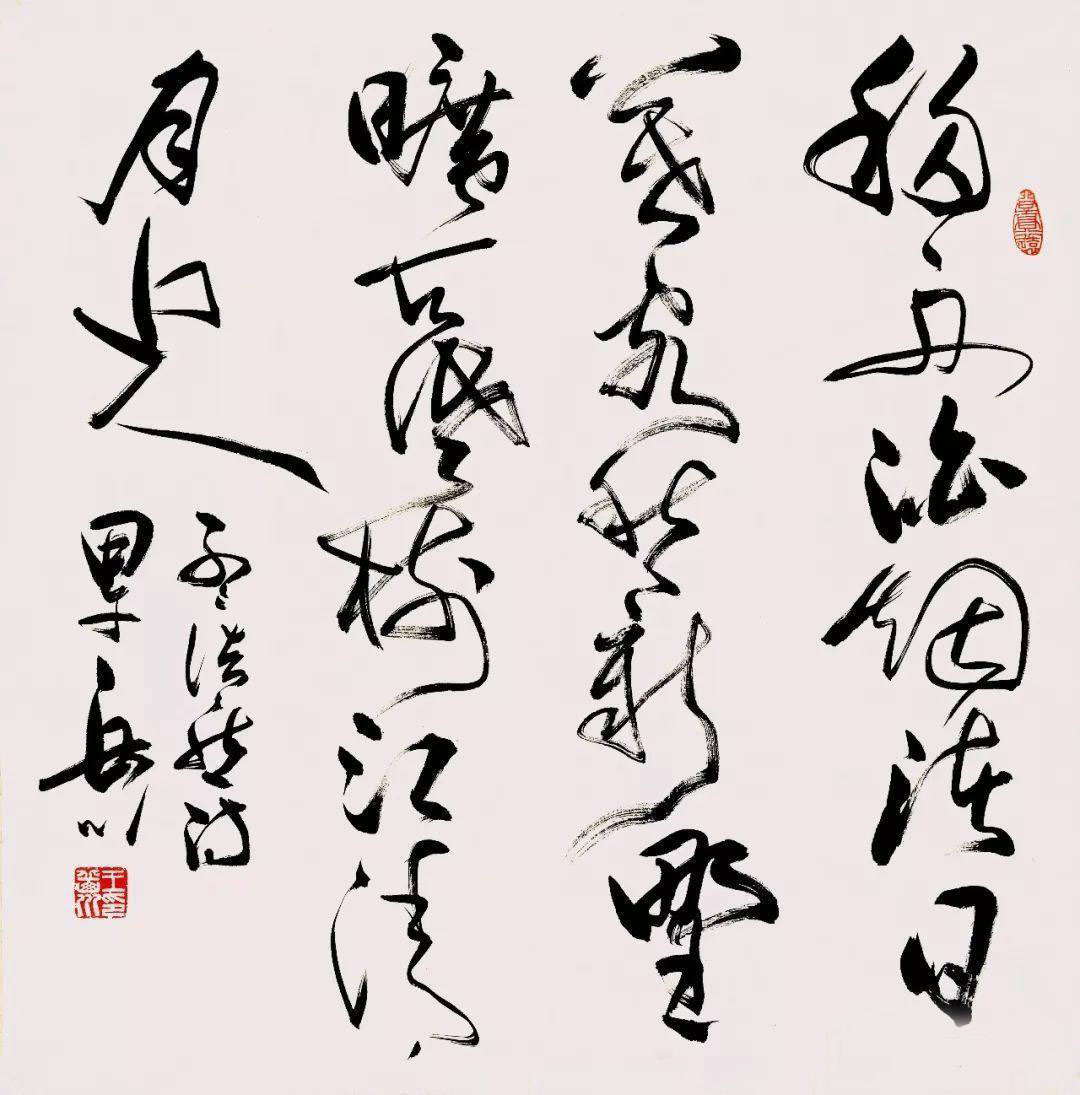 移舟泊烟渚日
暮客愁新野
曠天低樹江清
月近人
孟浩然诗
岳川